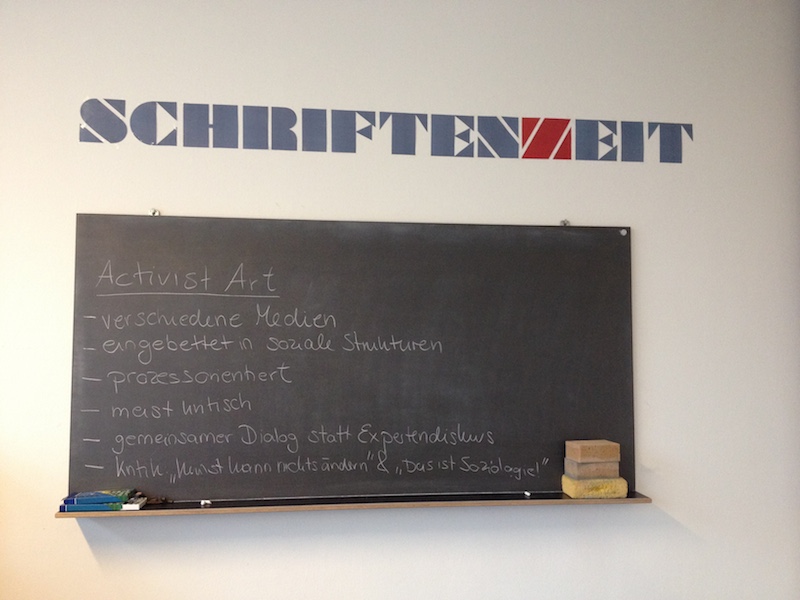 SCHRIFTENZEIT
Activist Art
- verschiedene Medien
- eingebettet in soziale Strukturen
- prozessorientiert
- meist kritisch
- gemeinsamer Dialog statt Expertendiskurs
- Kritik „Kunst kann nichts ändern" & „Das ist Soziologie!"